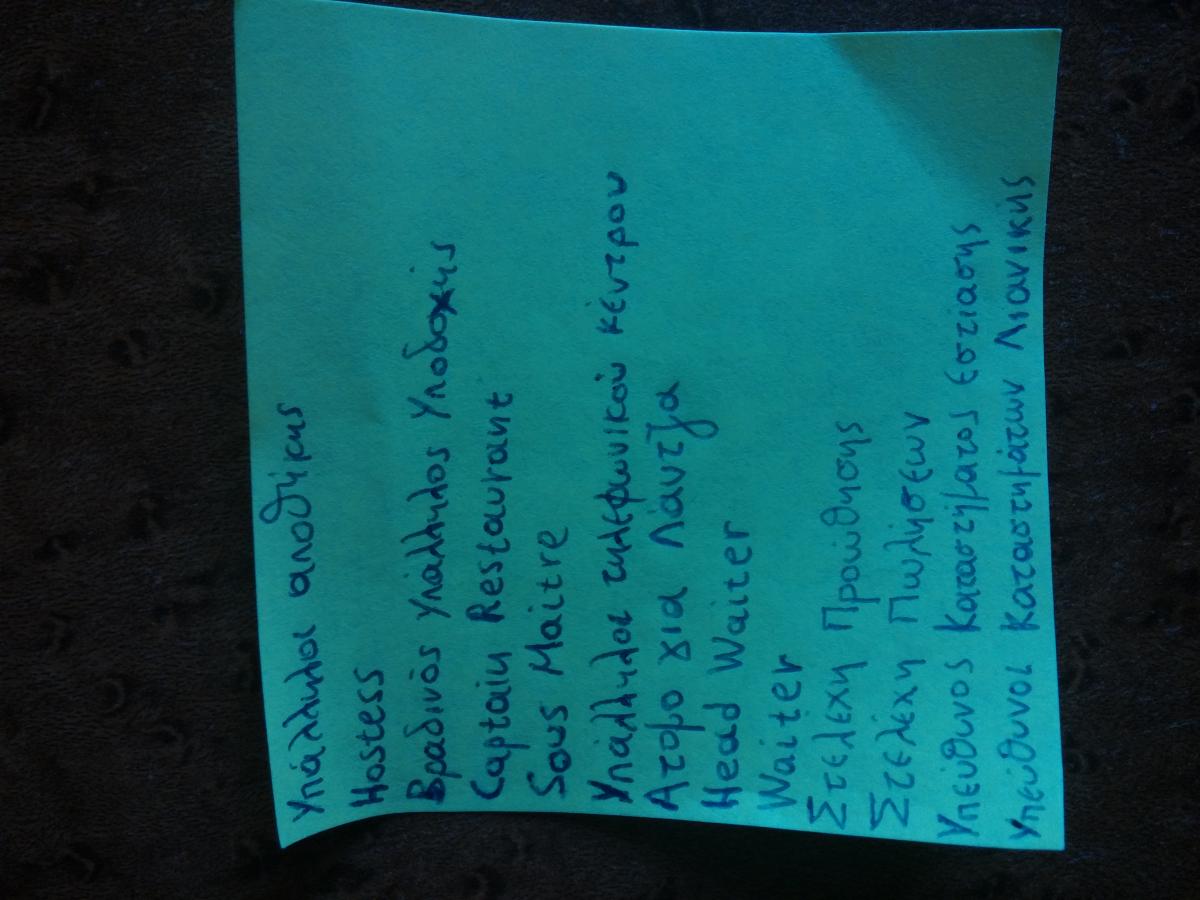 Υπάλληλοι αποθήκης
Hostess
Βραδινός Υπάλληλος Υποδοχής
Captain Restaurant
Sous Maitre
Υπάλληλοι τηλεφωνικού κέντρου
Ατομο για Λάντζα
Head Waiter
Waiter
Στελεχη Προώθησης
Στελέχη Πωλήσεων
Υπεύθυνος Καταστήματος εστίασης
Υπεύθυνοι Καταστημάτων Λιανικής